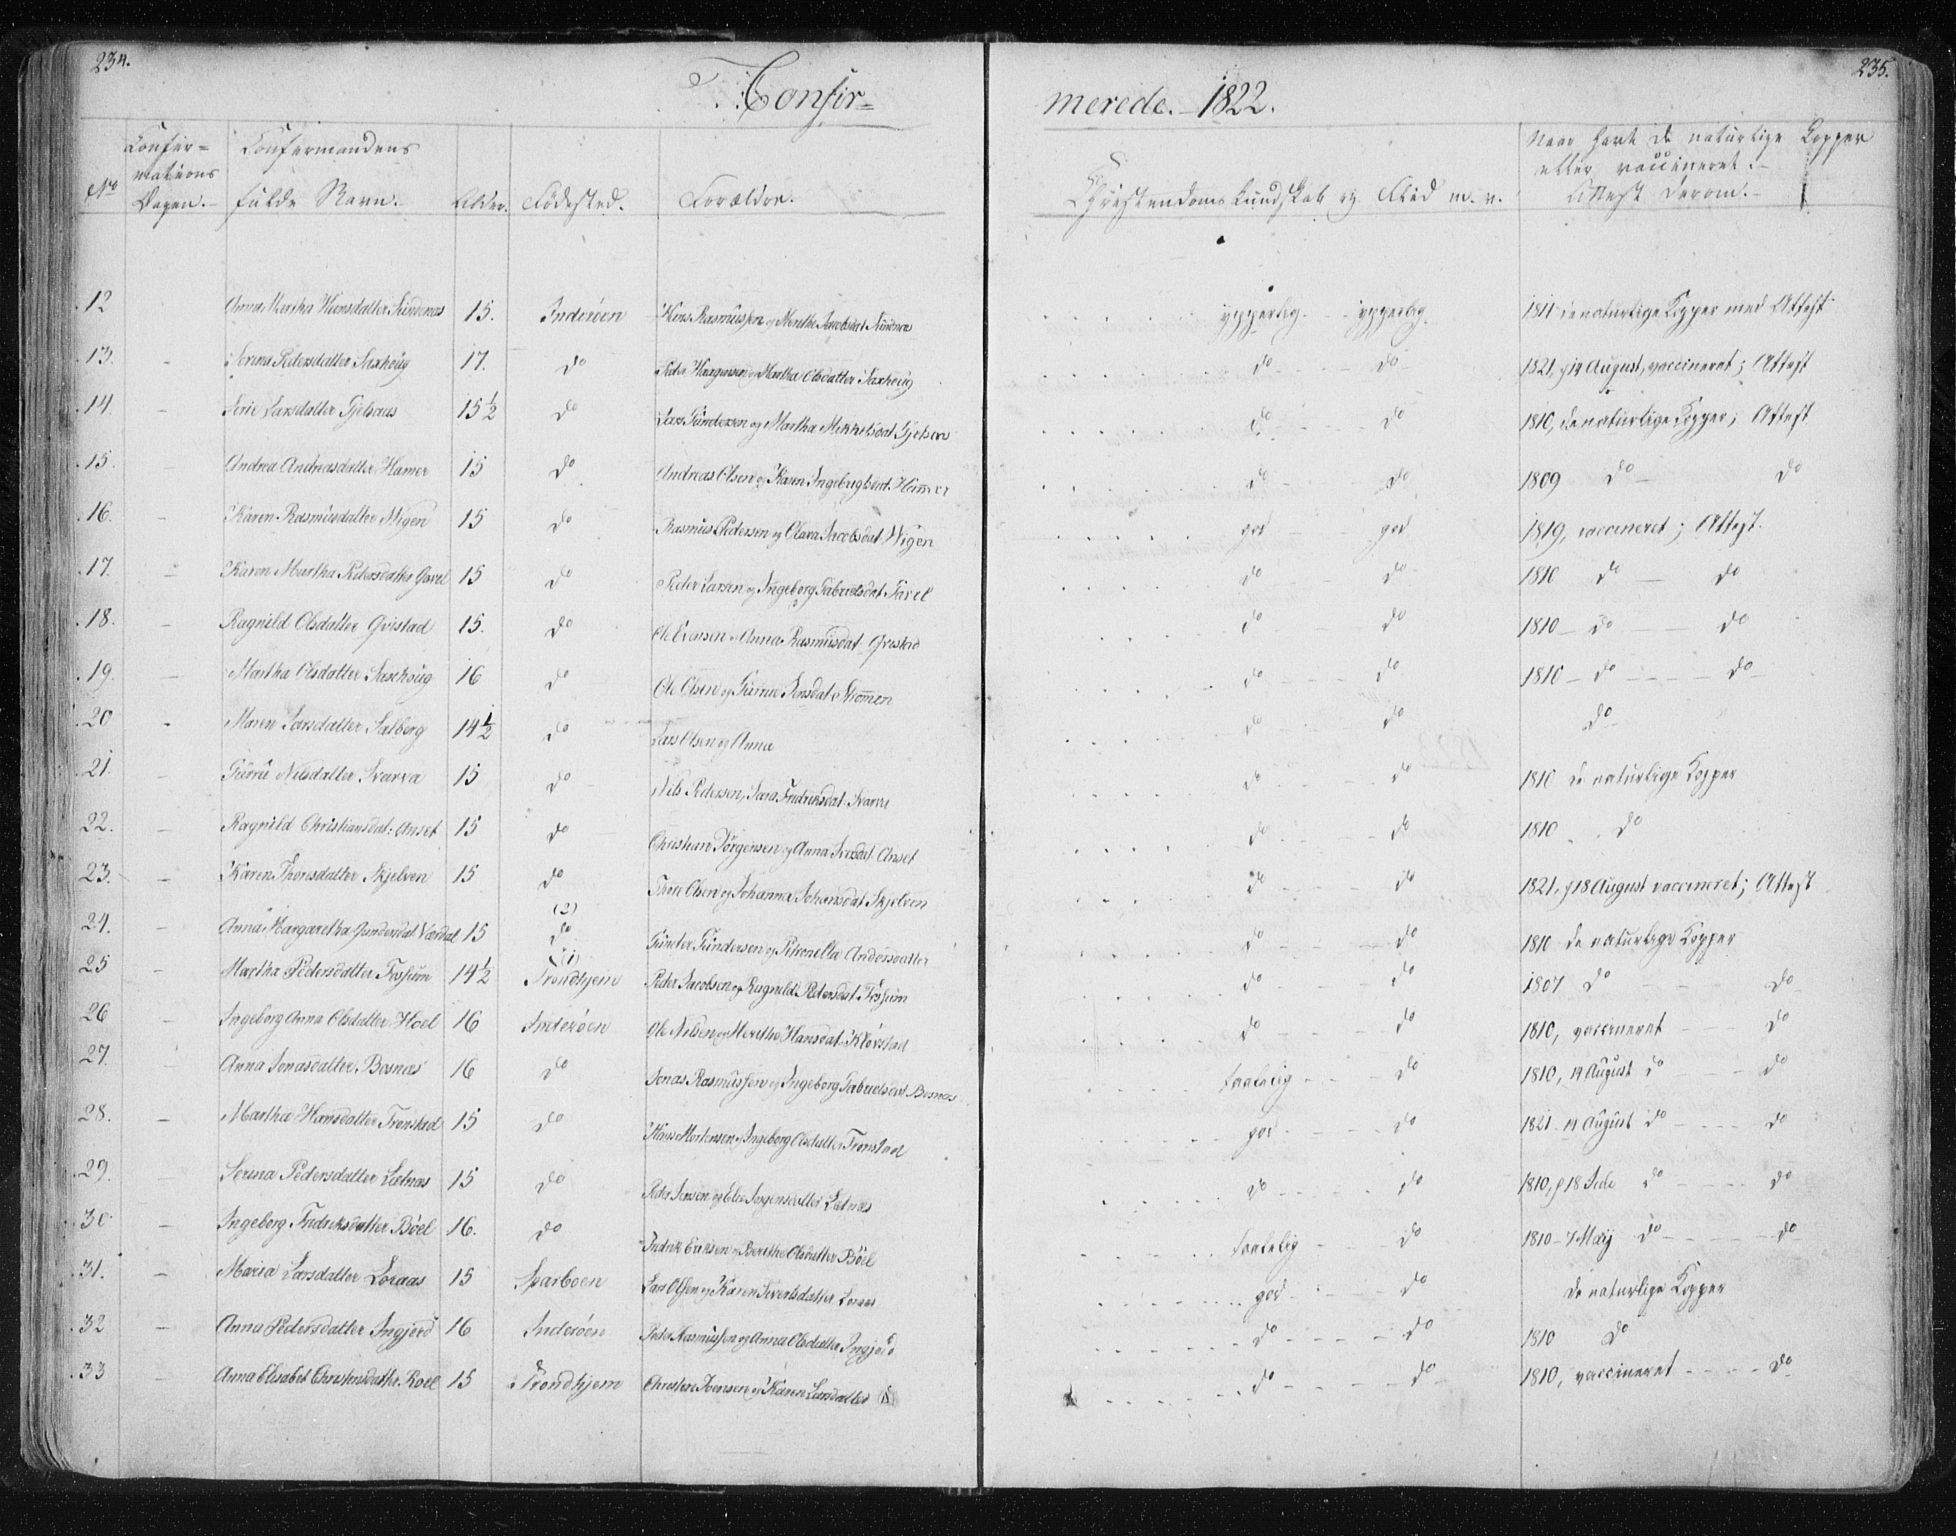 234.
Confir=
merede. 1822.
235.
No
Confir=
mations
Dagen.
Confirmandens
fulde Navn.
Alder.
Födested.
Forældre.
Christendoms Kundskab og Flid m. v.
Naar havt de naturlige Kopper
eller vaccineret.
Attest derom.
12 Anna Martha Hansdatter Sundnæs 15. Inderöen Hans Rasmussen og Merethe Jacobsdat Sundnæs ypperlig ypperlig 1811 de naturlige Kopper med Attest
13. Serina Pedersdatter Saxhoug 17. do Peder Haagensen og Martha Olsdatter Saxhoug do do 1821, d 14 August, vaccineret; Attest
14. Larsdatter 15 1/2 do Lars Gundersen og Martha Mikkelsdat do do 1810, de naturlige Kopper; Attest
15. Andrea Andreasdatter Hamer 15 do Andreas Olsen og Karen Ingebrigtsdat. Hamer do do 1809 do do
16. Karen Rasmusdatter Wigen 15 do Rasmus Pedersen og Olava Jacobsdat Wigen god god 1819, vaccineret; Attest.
17. Karen Martha Pedersdatter Gavel 15 do Peder Larsen og Ingeborg Gabrielsdat Gavel do do 1810 do do
18. Ragnild Olsdatter Qvistad 15. do Ole Evensen Anna Rasmusdat Qvistad do do 1810 do do
19. Martha Olsdatter Saxhoug 16 do Ole Olsen og Gurue Jensdat Strömen do do 1810 do do
20 Maren Larsdatter Salberg 14 1/2 do Lars Olsen og Anna do do do
21. Guru Nilsdatter Svarva 15 do Nils Pedersen, Sara Fredriksdat. Svarva do do 1810 de naturlige Kopper
22. Ragnild Christiansdat. Anset 15 do Christian Jörgensen og Anna Anset do do 1810 do
23. Karen Thoresdatter Skjelven 15 do Thore Olsen og Johanna Johansdat Skjelven do do 1821, d 18 August vaccineret; Attest
24. Anna Margaretha Gundersdat Værdal 15 (2) do Gunder Gundersen og Petronella Andersdatter do do 1810 de naturlige Kopper
25 Martha Pedersdatter Fossum 14 1/2 (1) Trondhjem Peder Jacobsen og Ragnild Pedersdat Fossum do do 1807 do do
26 Ingeborg Anna Olsdatter Hoel 16 Inderöen Ole Nilsen og Merethe Hansdat Klövstad do do 1810, vaccineret do
27. Anna Jonasdatter Bosnæs 16 do Jonas Rasmussen og Ingeborg Gabrielsdat Bosnæs taalelig do 1810, 14 August do do
28. Martha Hansdatter Tronstad 15 do Hans Mortensen og Ingeborg Olsdatter Tronstad god do 1821 14 August do do
29. Serina Pedersdatter Letnæs 15 do Peder Jensen og Elen Jörgensdatter Letnæs do do 1810, d 18 Julie do do
30 Ingeborg Fredriksdatter Böel 16. do Fredrik Eriksen og Berethe Olsdatter Böel taalelig do 1810 7 Maÿ do do
31. Maria Larsdatter Loraas 15 Sparboen Lars Olsen og Karen Sivertsdatter Loraas god do de naturlige Kopper
32 Anna Pedersdatter Ingjerd 16 Inderöen Peder Rasmussen og Anna Olsdatter Ingjerd do do 1810 do
33 Anna Elisabet Christensdatter Roel 15 Trondhjem Christen Jvensen og Karen Larsdatter do do 1810, vaccineret do